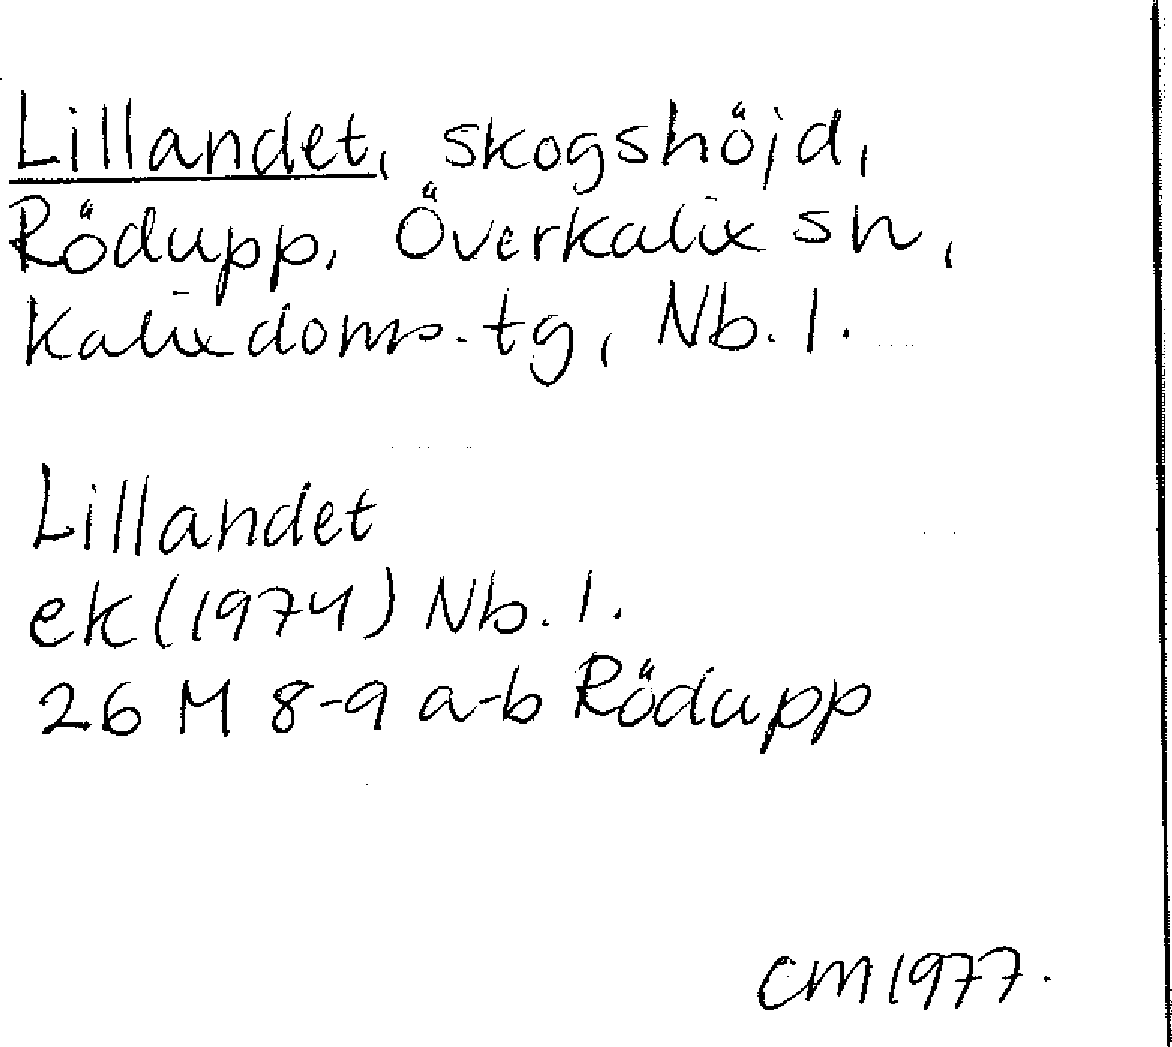 Lillandet, skogshöjd,
Rödupp, Överkalix sn,
Kalix doms.tg, Nb. l.
Lillandet
ek (1974) Nb. l.
26 M 8-9 a-b Rödupp
CM 1977.